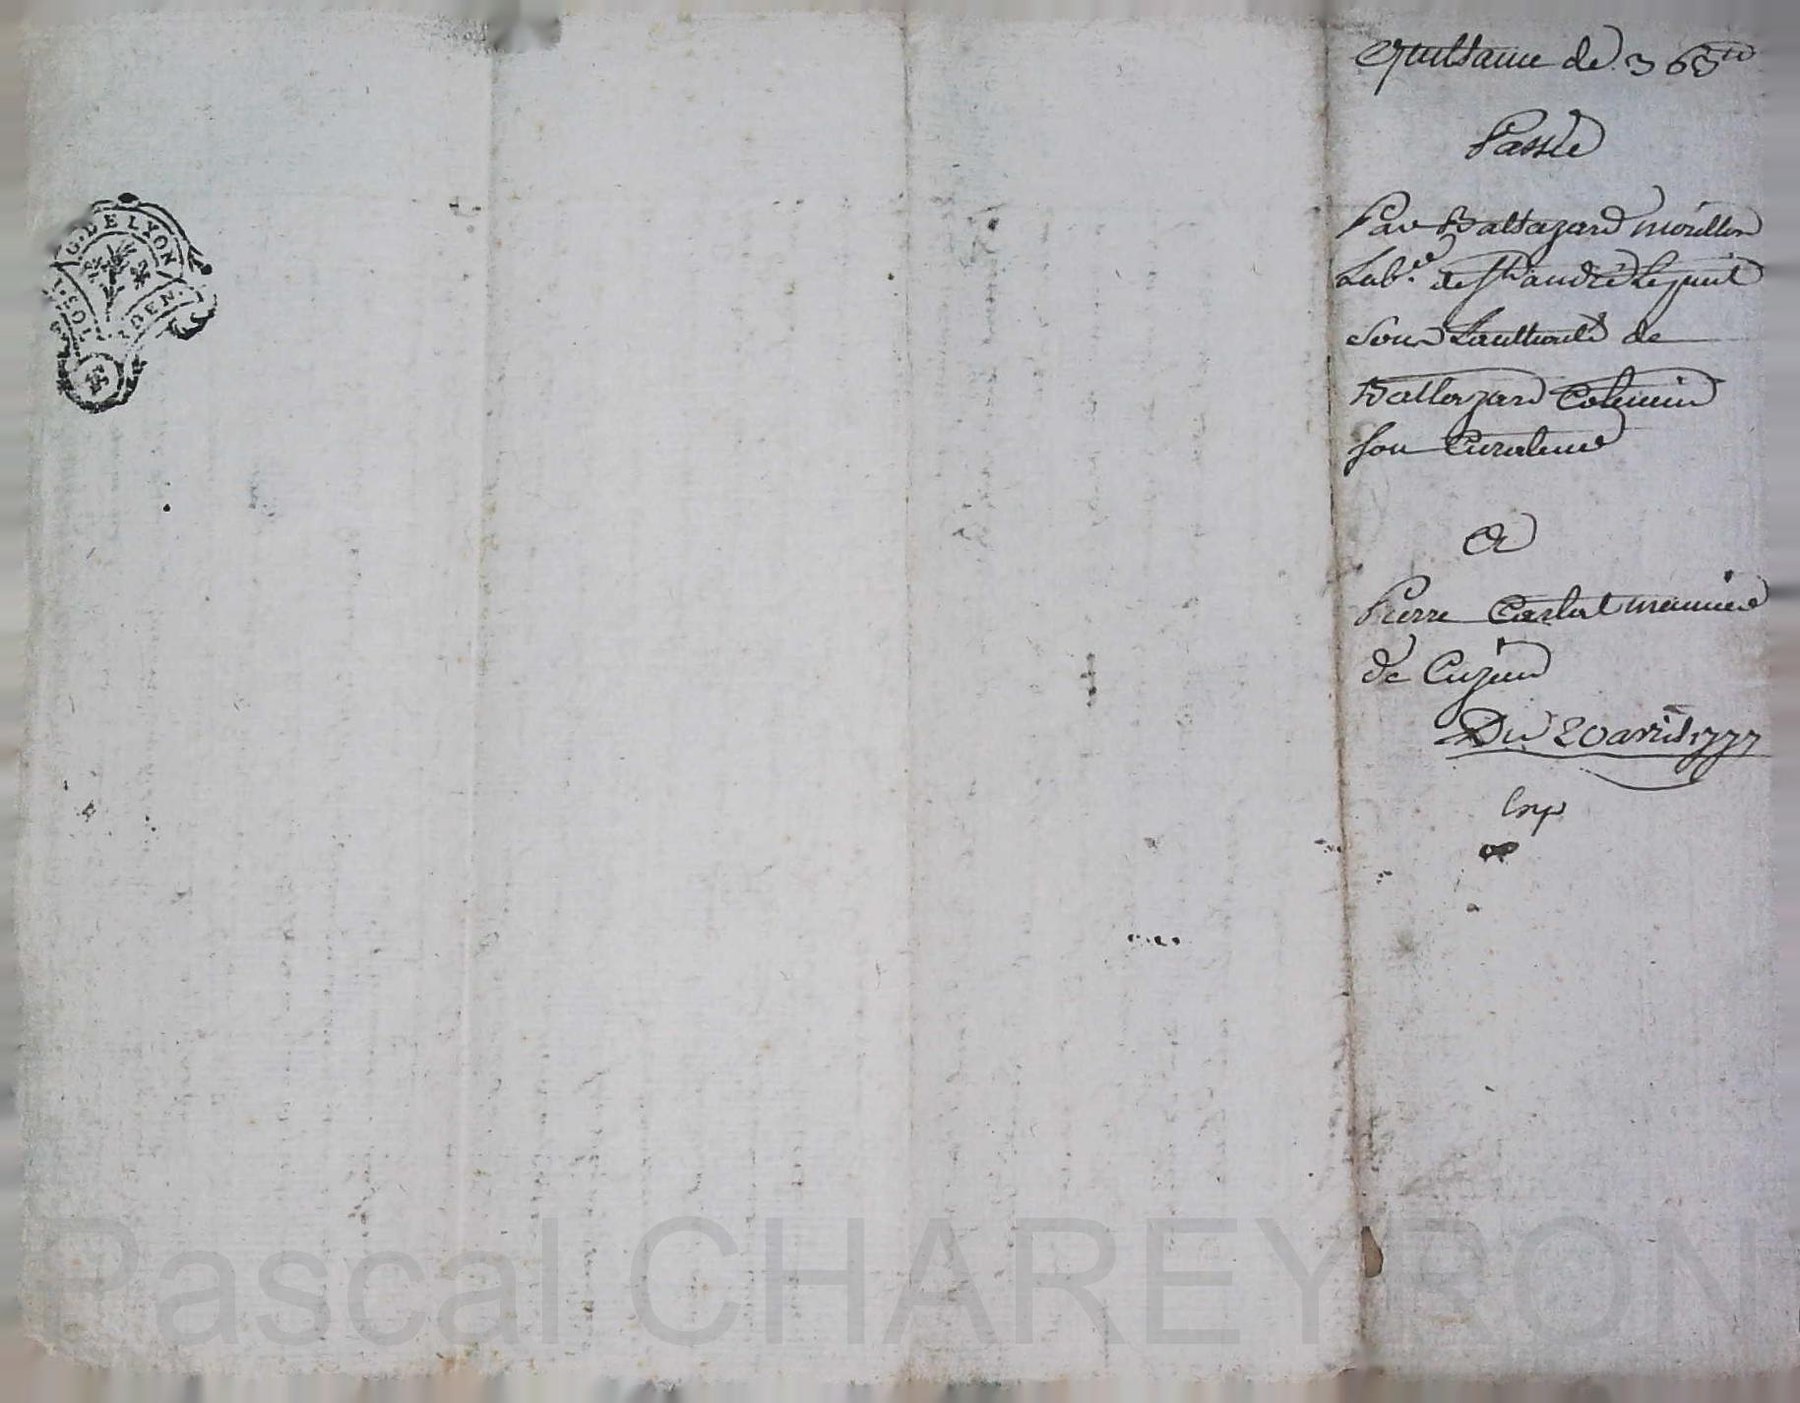 G. DE LYON
1. SOL
DEN.
quittance de 365 tt
Passée
Par Baltazard morillon
Lab.r de St andré Le puit
Sous Lauthorité de
Baltazard Colemin
son Curateur
A
Pierre Carlat meunier
de Cuzieu
Du 20 avril 1777
Exp
Pascal CHAREYRON